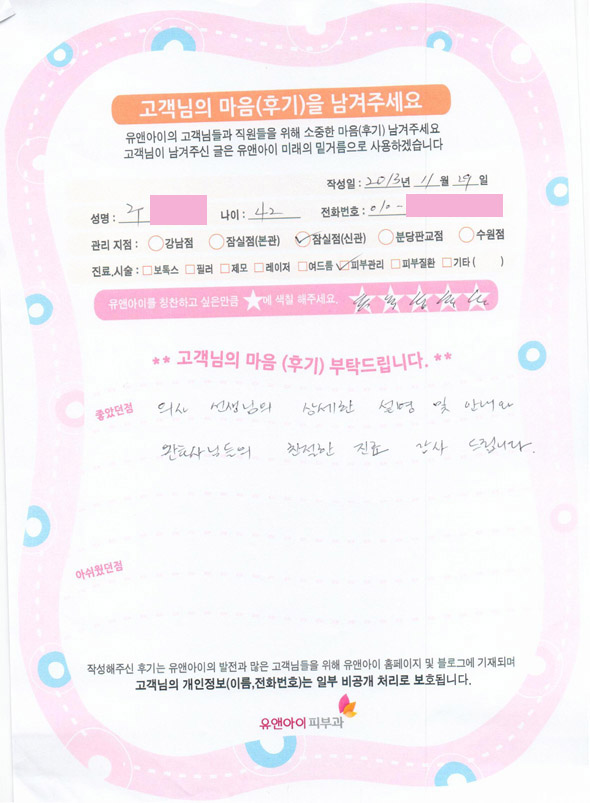 고객님의 마음(후기)을 남겨주세요
유앤아이의 고객님들과 직원들을 위해 소중한 마음(후기) 남겨주세요
고객님이 남겨주신 글은 유앤아이 미래의 밑거름으로 사용하겠습니다
작성일 : 2013년 11월 29일
성명 : 나이 : 42 전화번호 : 010 -
관리 지점 : 강남점 잠실점(본관) 잠실점(신관) 분당판교점 수원점
진료,시술 : 보톡스 필러 제모 레이저 여드름 피부관리 피부질환 기타 ( )
유앤아이를 칭찬하고 싶은만큼 ★에 색칠 해주세요.
** 고객님의 마음 (후기) 부탁드립니다. **
좋았던점 의사 선생님의 상세한 설명 및 안내와
간호사님들의 친절한 진료 감사 드립니다.
아쉬웠던점
작성해주신 후기는 유앤아이의 발전과 많은 고객님들을 위해 유앤아이 홈페이지 및 블로그에 기재되며
고객님의 개인정보(이름,전화번호)는 일부 비공개 처리로 보호됩니다.
유앤아이피부과